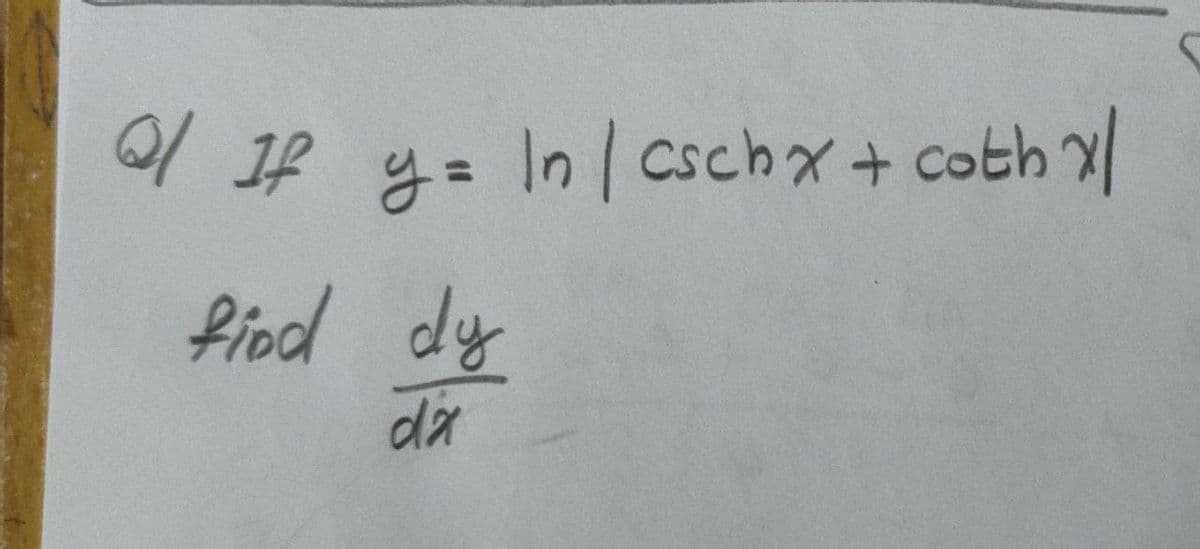 Q/ If y = ln | cschx + coth x|
find dy
dx